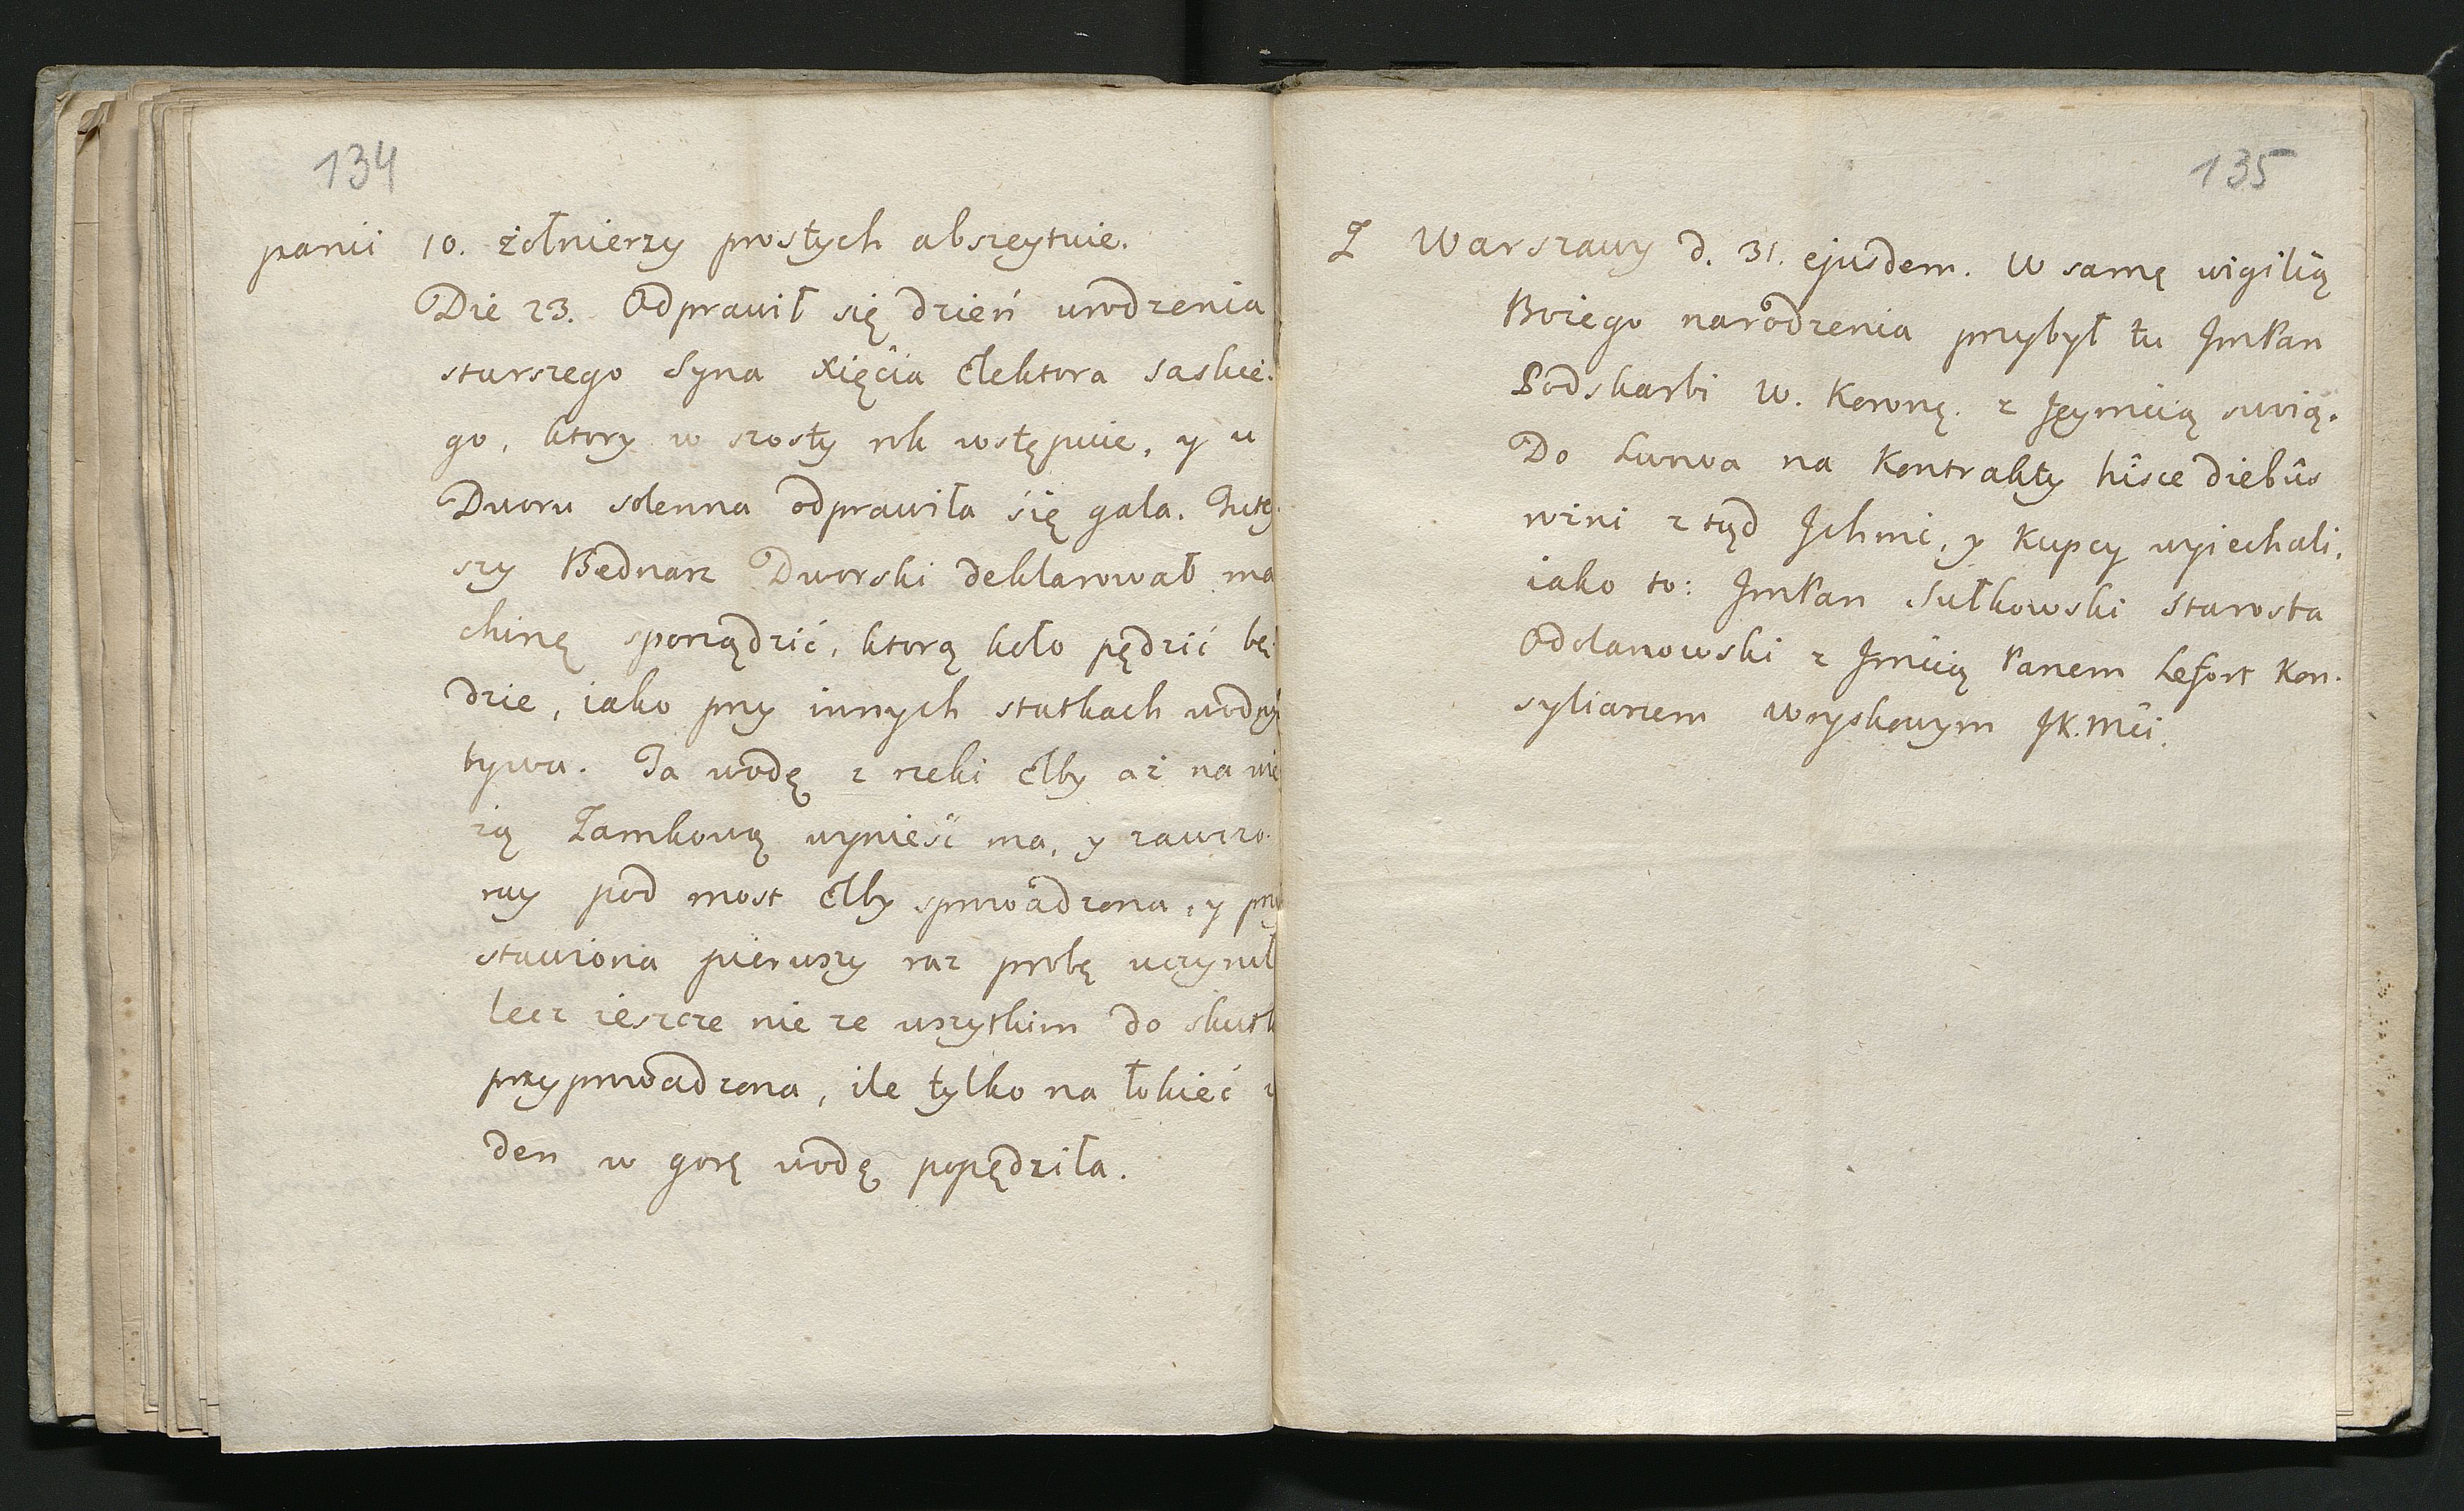 134
panii 10. żołnierzy prostych abszeytuie.
Die 23. Odprawił się dzień urodzenia
starszego Syna Xięcia Elektora Saskie.
go, ktory w szosty rok wstępuie, y u
Dworu solenna odprawiła się gala. Tutey.
szy Bednarz Dworski deklarował ma
chinę sporządzić, ktorą koło pędzić bę.
dzie, iako przy innych statkach wodny
tywa. Ta wodę z rzeki Elby aż na wie
żą Zamkową wynieść ma, y zawczo.
ray pod most Elby sprowadzona, y przy
stawiona pierwszy raz probę uczynił
lecz ieszcze nie ze wszytkim do skutk
przyprowadzona, ile tylko na łokieć
den w gorę wodę popędziła.
135
Z Warszawy d. 31. ejusdem. W samę wigilią
Bożego narodzenia przybył tu JmPan
Podskarbi W. Koronę. z Jeymcią swoią.
Do Lwowa na Kontrakty hisce diebus
rożni z tąd Ichmć, y Kupcy wyiechali,
iako to: JmPan Sułkowski Starosta
Odolanowski z Jmcią Panem Lefort Kon.
syliarzem Woyskowym JK.Mći.